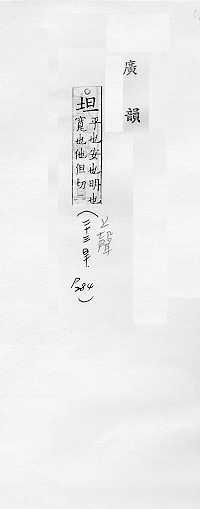 廣韻
坦 平也安也明也
寬也他但切二
上聲
(二十三旱
P.284)